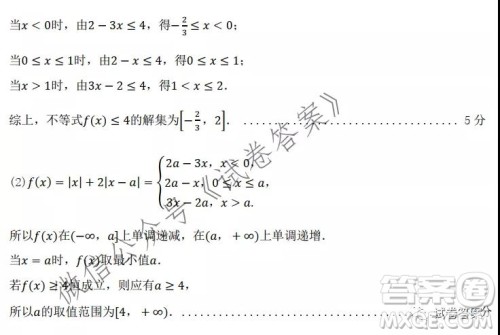 当x < 0时，由2 − 3x ≤ 4，得−2/3 ≤ x < 0；
当0 ≤ x ≤ 1时，由2 − x ≤ 4，得0 ≤ x ≤ 1；
当x > 1时，由3x − 2 ≤ 4，得1 < x ≤ 2．
综上，不等式f(x) ≤ 4的解集为[−2/3，2]．……………………………5 分
(2) f(x) = |x| + 2|x − a| = {2a − 3x，x < 0，
2a − x，0 ≤ x ≤ a，
3x − 2a，x > a．
所以f(x)在(−∞，a]上单调递减，在(a，+∞)上单调递增．
当x = a时，f(x)取最小值a．
若f(x) ≥ 4恒成立，则应有a ≥ 4，
所以a的取值范围为[4，+∞)．
微信公众号《试卷答案》
答案圈
试卷答案